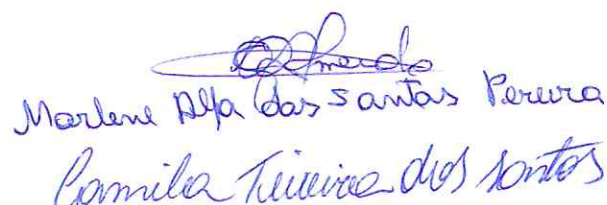 Marlene Alfa dos Santos Pereira
Camila Teixeira dos Santos